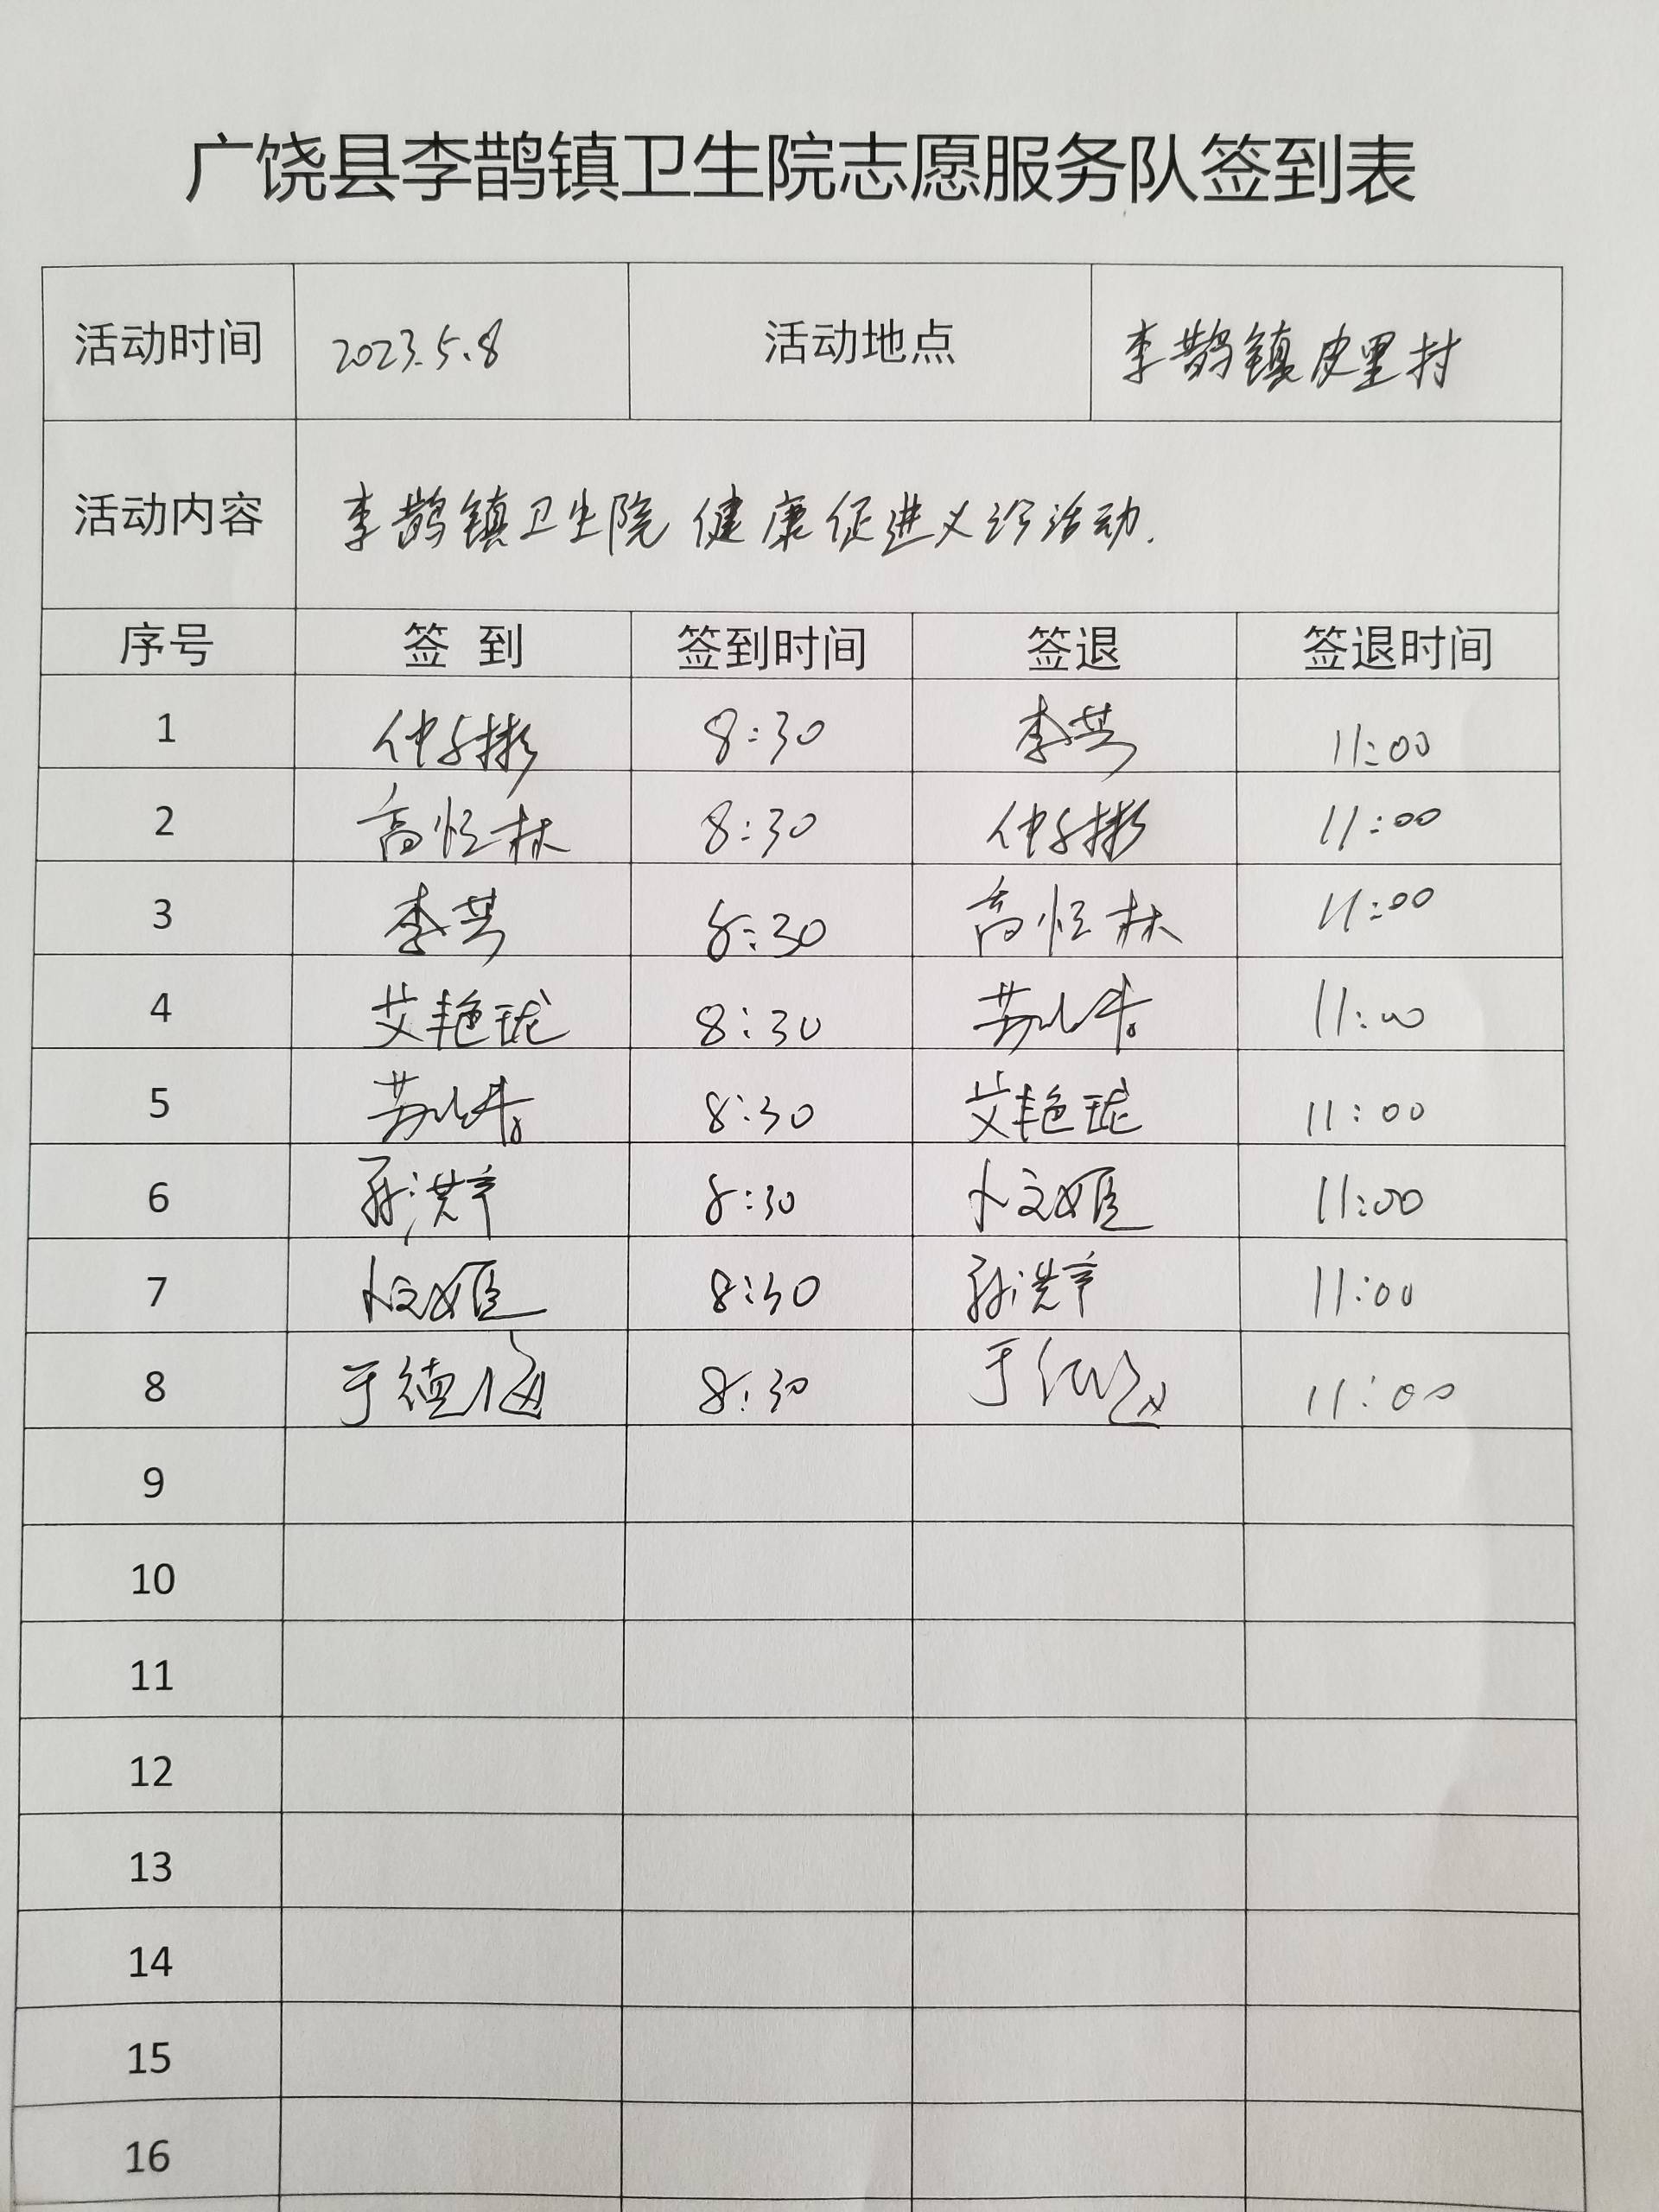 广饶县李鹊镇卫生院志愿服务队签到表
活动时间 2023.5.8 活动地点 李鹊镇皮里村
活动内容 李鹊镇卫生院健康促进义诊活动.
序号 签到 签到时间 签退 签退时间
1 8:30 11:00
2 高恒林 8:30 11:00
3 8:30 高恒林 11:00
4 艾艳珑 8:30 11:00
5 8:30 艾艳珑 11:00
6 孙洪亭 8:30 卜文姬 11:00
7 卜文姬 8:30 孙洪亭 11:00
8 于德海 8:30 11:00
9
10
11
12
13
14
15
16